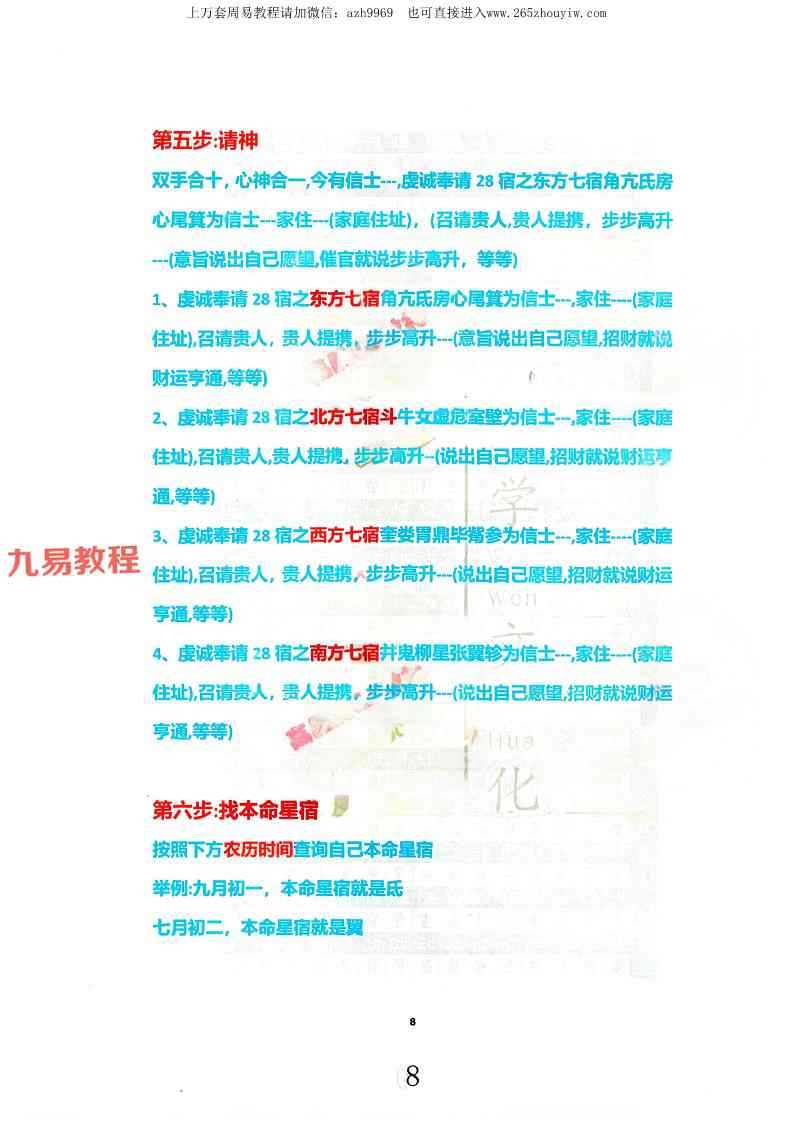 上万套周易教程请加微信：azh9969 也可直接进入www.265zhouyiw.com
第五步:请神
双手合十，心神合一,今有信士---,虔诚奉请 28 宿之东方七宿角亢氐房
心尾箕为信士---家住---(家庭住址)，(召请贵人,贵人提携，步步高升
---(意旨说出自己愿望,催官就说步步高升，等等)
1、虔诚奉请 28 宿之东方七宿角亢氐房心尾箕为信士---,家住----(家庭
住址),召请贵人，贵人提携，步步高升---(意旨说出自己愿望,招财就说
财运亨通,等等)
2、虔诚奉请 28 宿之北方七宿斗牛女虚危室壁为信士---,家住----(家庭
住址),召请贵人,贵人提携，步步高升--(说出自己愿望,招财就说财运亨
通,等等)
3、虔诚奉请 28 宿之西方七宿奎娄胃鼎毕觜参为信士---,家住----(家庭
住址),召请贵人，贵人提携，步步高升---(说出自己愿望,招财就说财运
亨通,等等)
九易教程
4、虔诚奉请 28 宿之南方七宿井鬼柳星张翼轸为信士---,家住----(家庭
住址),召请贵人，贵人提携，步步高升---(说出自己愿望,招财就说财运
亨通,等等)
学
Wen
文
Hua
化
第六步:找本命星宿
按照下方农历时间查询自己本命星宿
举例:九月初一，本命星宿就是氐
七月初二，本命星宿就是翼
8
8